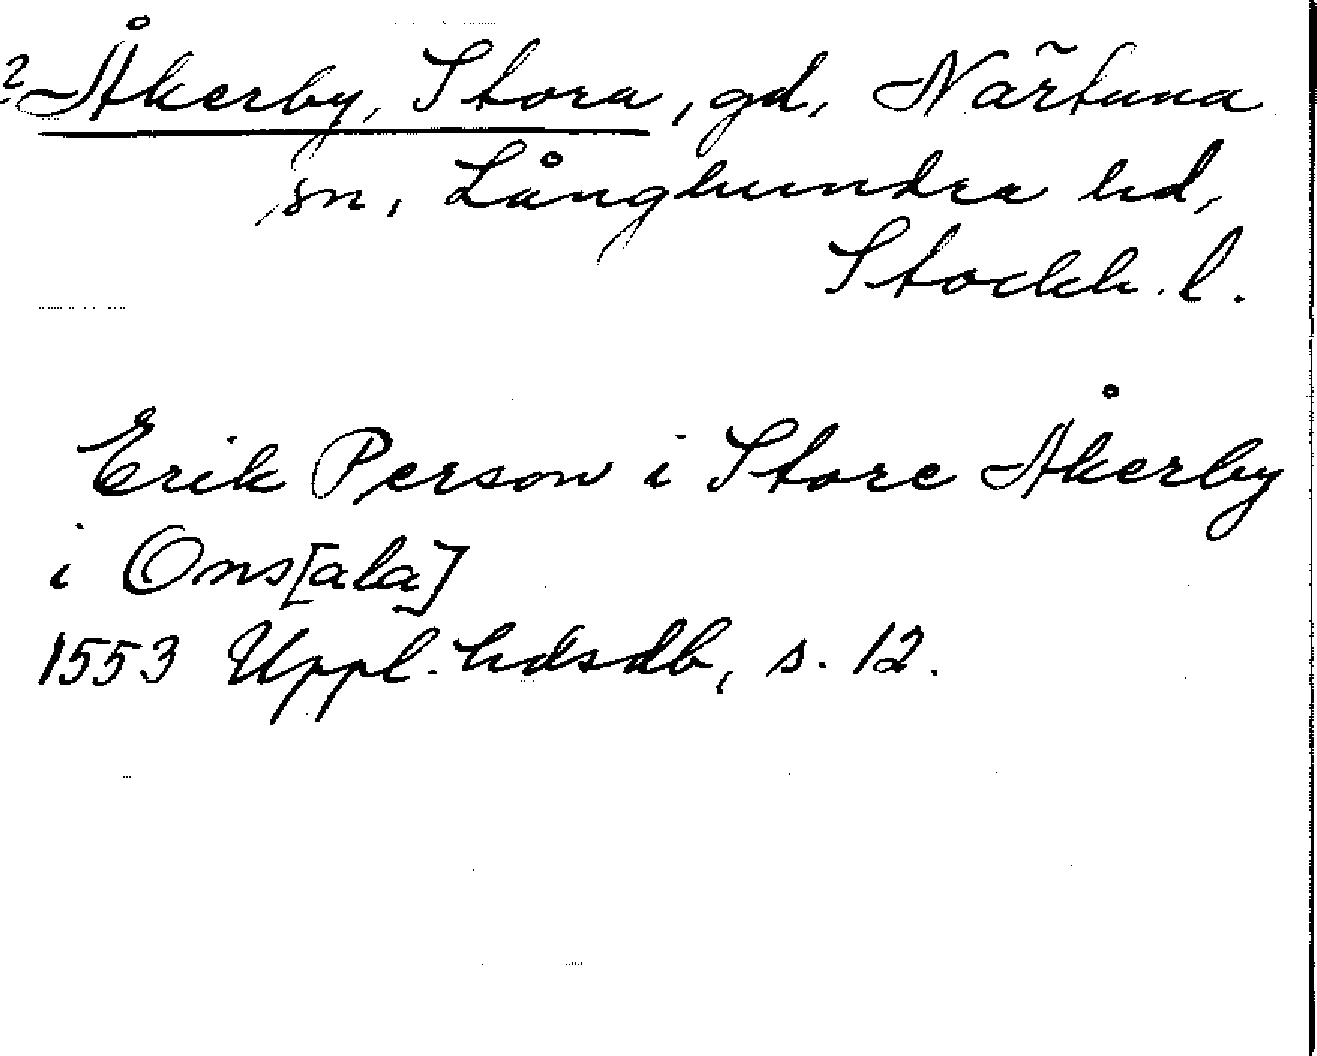 ? Åkerby, Stora, gd, Närtuna
sn, Långhundra hd,
Stockh. l.
Erik Person i Store Åkerby
i Ons[ala]
1553 Uppl. hdsdb, s. 12.